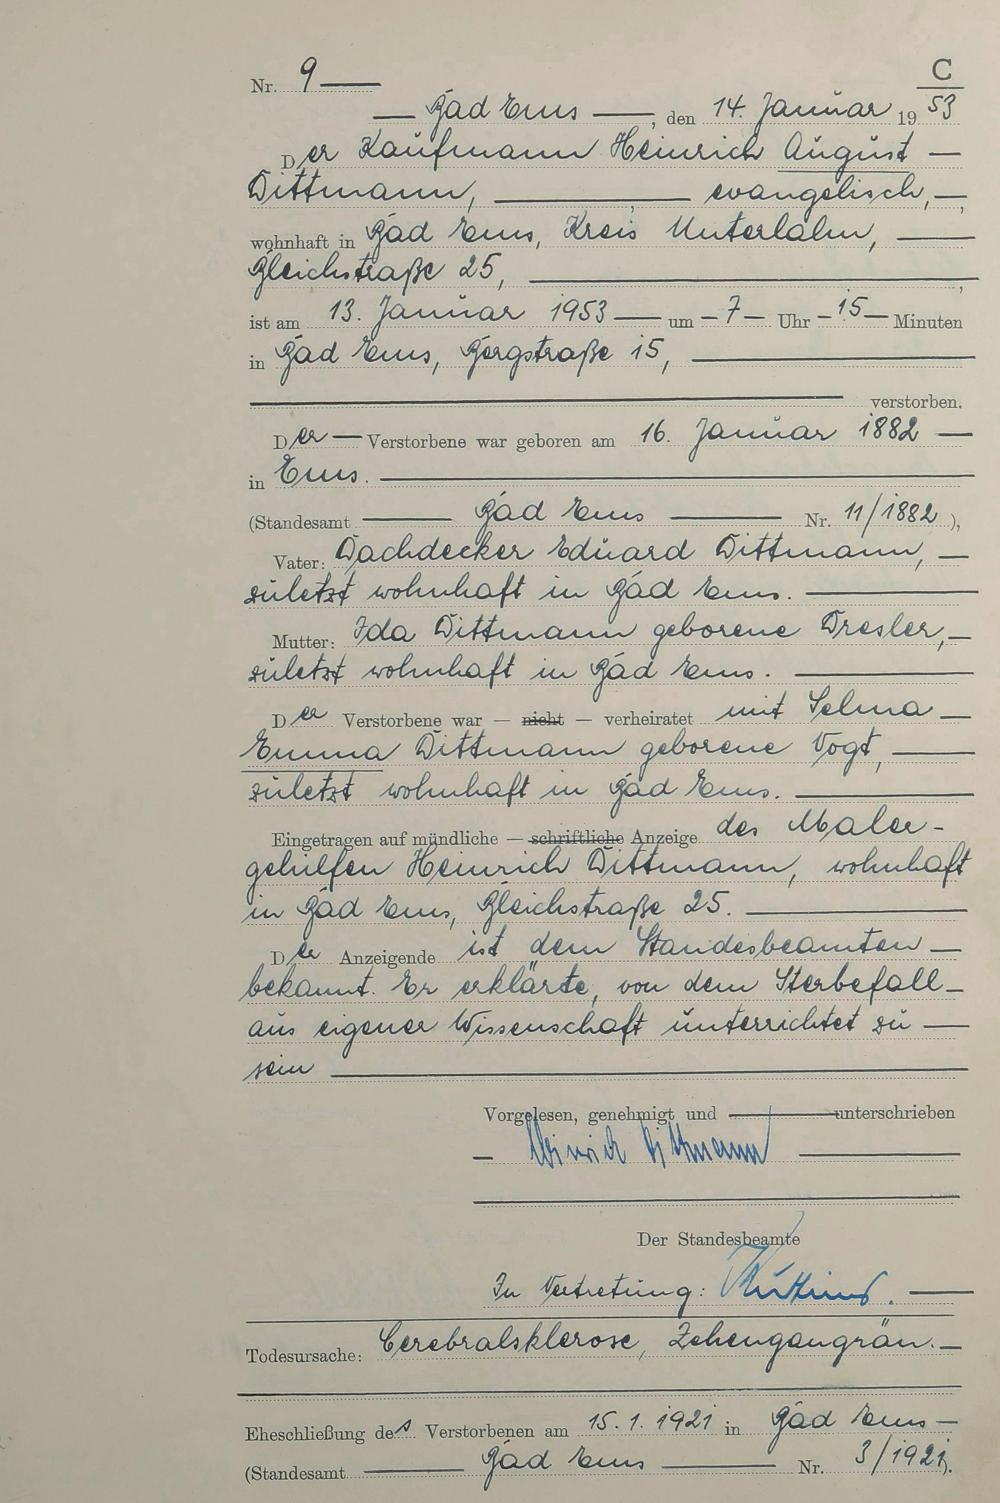 C
Nr. 9
Bad Ems, den 14. Januar 1953
Der Kaufmann Heinrich August
Dittmann, evangelisch,
wohnhaft in Bad Ems, Kreis Unterlahn,
Gleichstraße 25,
ist am 13. Januar 1953 um 7 Uhr 15 Minuten
in Bad Ems, Bergstraße 15,
verstorben.
Der Verstorbene war geboren am 16. Januar 1882
in Ems.
(Standesamt Bad Ems Nr. 11/1882),
Vater: Dachdecker Eduard Dittmann,
zuletzt wohnhaft in Bad Ems.
Mutter: Ida Dittmann geborene Dresler,
zuletzt wohnhaft in Bad Ems.
Der Verstorbene war — nicht — verheiratet mit Selma
Emma Dittmann geborene Vogt,
zuletzt wohnhaft in Bad Ems.
Eingetragen auf mündliche — schriftliche Anzeige des Maler-
gehilfen Heinrich Dittmann, wohnhaft
in Bad Ems, Gleichstraße 25.
Der Anzeigende ist dem Standesbeamten
bekannt. Er erklärte, von dem Sterbefall
aus eigener Wissenschaft unterrichtet zu
sein
Vorgelesen, genehmigt und unterschrieben
Heinrich Dittmann
Der Standesbeamte
In Vertretung:
Todesursache: Cerebralsklerose, Zehengangrän.
Eheschließung des Verstorbenen am 15.1.1921 in Bad Ems
(Standesamt Bad Ems Nr. 3/1921).